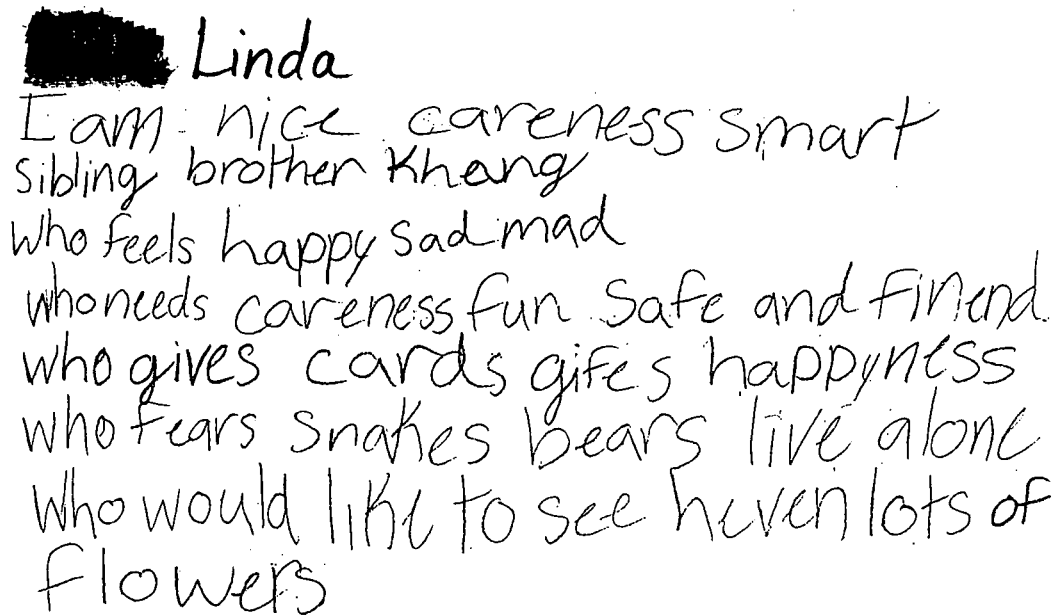 Linda
I am nice careness smart
sibling brother Khang
who feels happy sad mad
who needs careness fun safe and finend
who gives cards gifes happyness
who fears snakes bears live alone
who would like to see heven lots of
flowers